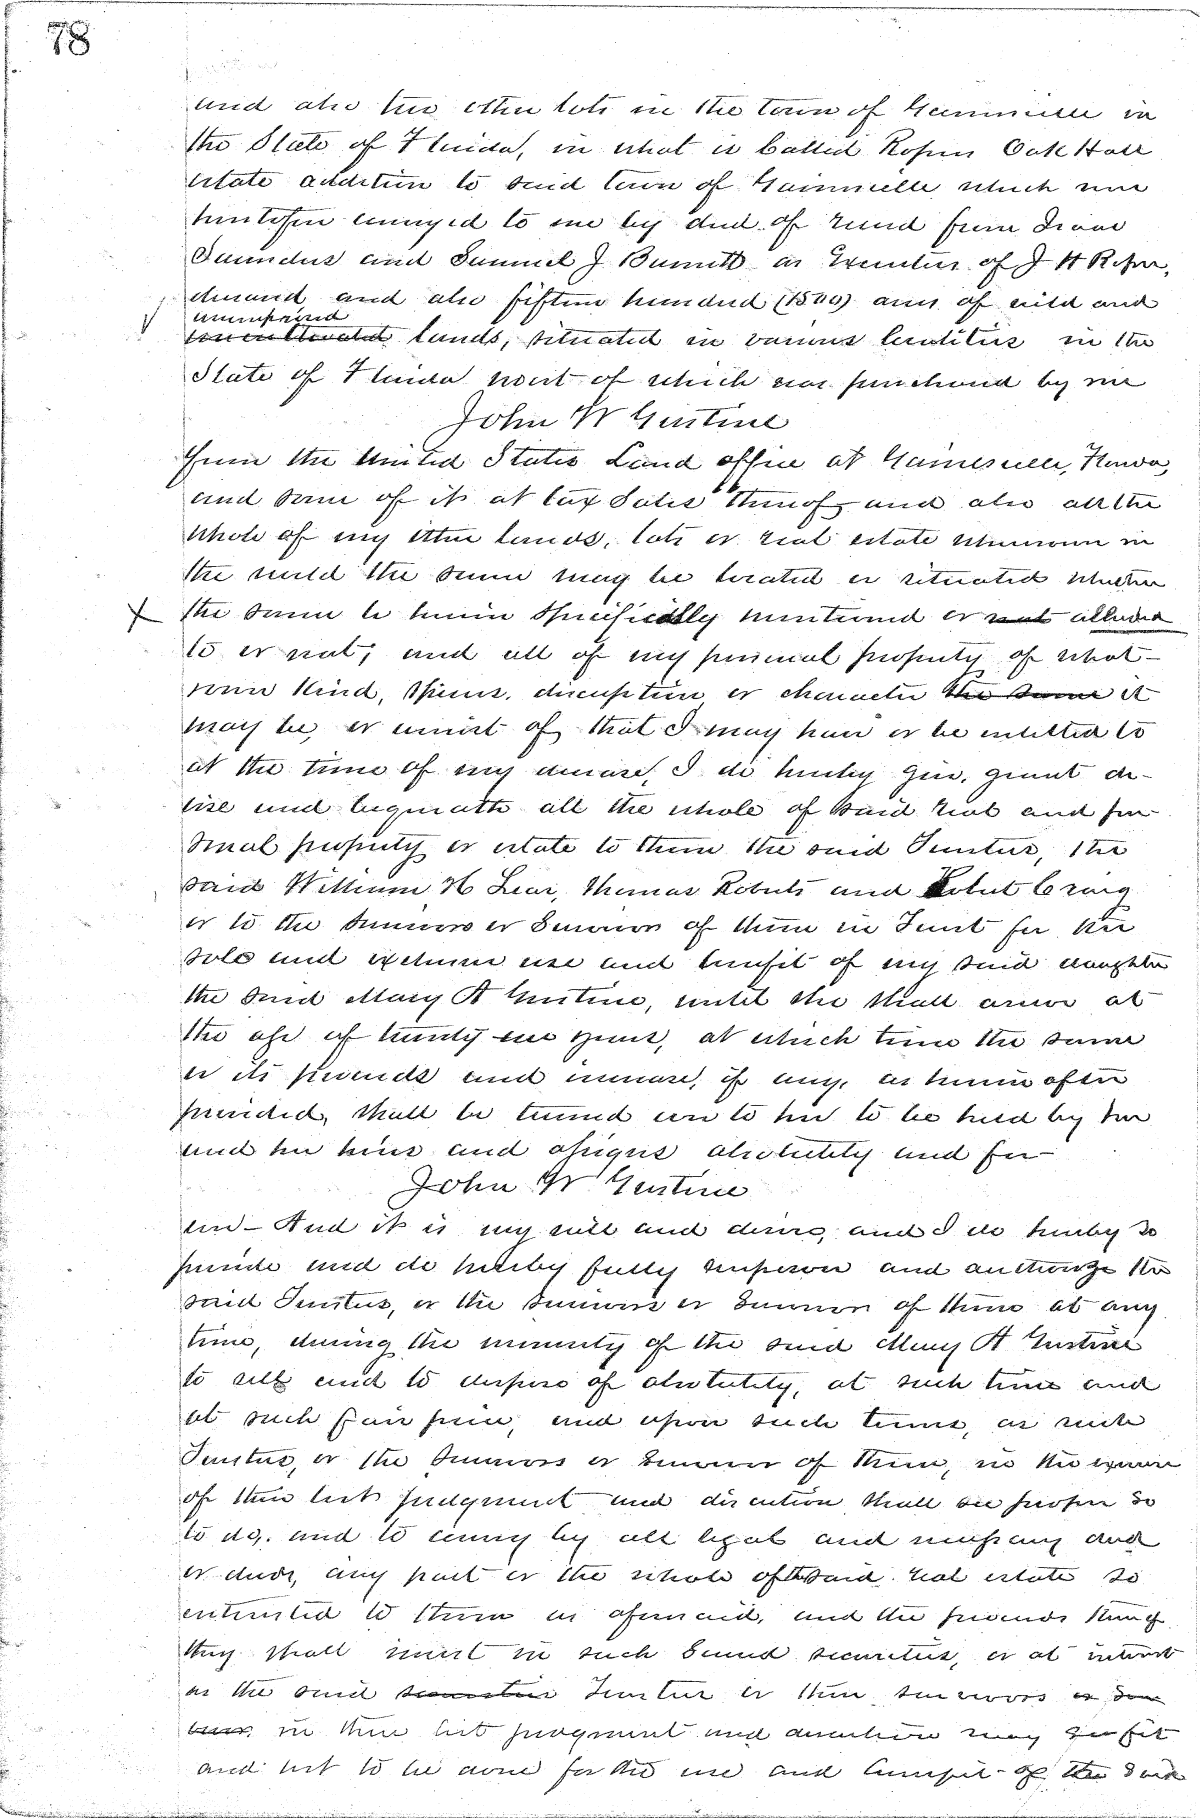 78
and also two other lots in the town of Gainesville in
the State of Florida, in what is Called Ropers Oak Hall
estate addition to said town of Gainesville which were
heretofore conveyed to me by deed of record from Isaac
Saunders and Samuel J Burnett as Executors of J H Roper,
deceased and also fifteen hundred (1500) acres of wild and
unimproved
uncultivated lands, situated in various localities in the
State of Florida most of which was purchased by me
John W Gustine
from the United States Land office at Gainesville, Florida,
and some of it at tax Sales thereof, and also all the
whole of my other lands, lots or real estate wherever in
the world the same may be located or situated whether
the same be herein specifically mentioned or not alluded
to or not; and all of my personal property of what-
soever kind, species, discription or character the same it
may be, or consist of that I may have or be entitled to
at the time of my decease, I do hereby give, grant de-
vise and bequeath all the whole of said real and per-
sonal property or estate to them the said Trustees, the
said William H Lear, Thomas Roberts and Robert Craig
or to the survivors or Survivor of them in Trust for the
sole and exclusive use and benefit of my said daughter
the said Mary A Gustine, until she shall arrive at
the age of twenty one years, at which time the same
or its proceeds and increase, if any, as herein after
provided, shall be turned over to her to be held by her
and her heirs and assigns absolutely and for-
John W Gustine
ever - And it is my will and desire, and I do hereby so
provide and do hereby fully empower and authorize the
said Trustees, or the survivors or Survivor of them at any
time, during the minority of the said Mary A Gustine
to sell and to dispose of absolutely, at such time and
at such fair price, and upon such terms, as such
Trustees, or the Survivors or Survivor of them, in the exercise
of their best judgment and discretion shall see proper so
to do, and to convey by all legal and necessary deed
or deeds, any part or the whole of said real estate so
entrusted to them as aforesaid, and the proceeds thereof
they shall invest in such Sound securities, or at interest
as the said securities Trustees or their survivors or Sur
vivor, in their best judgment and discretion may see fit
and best to be done for the use and benefit of the said